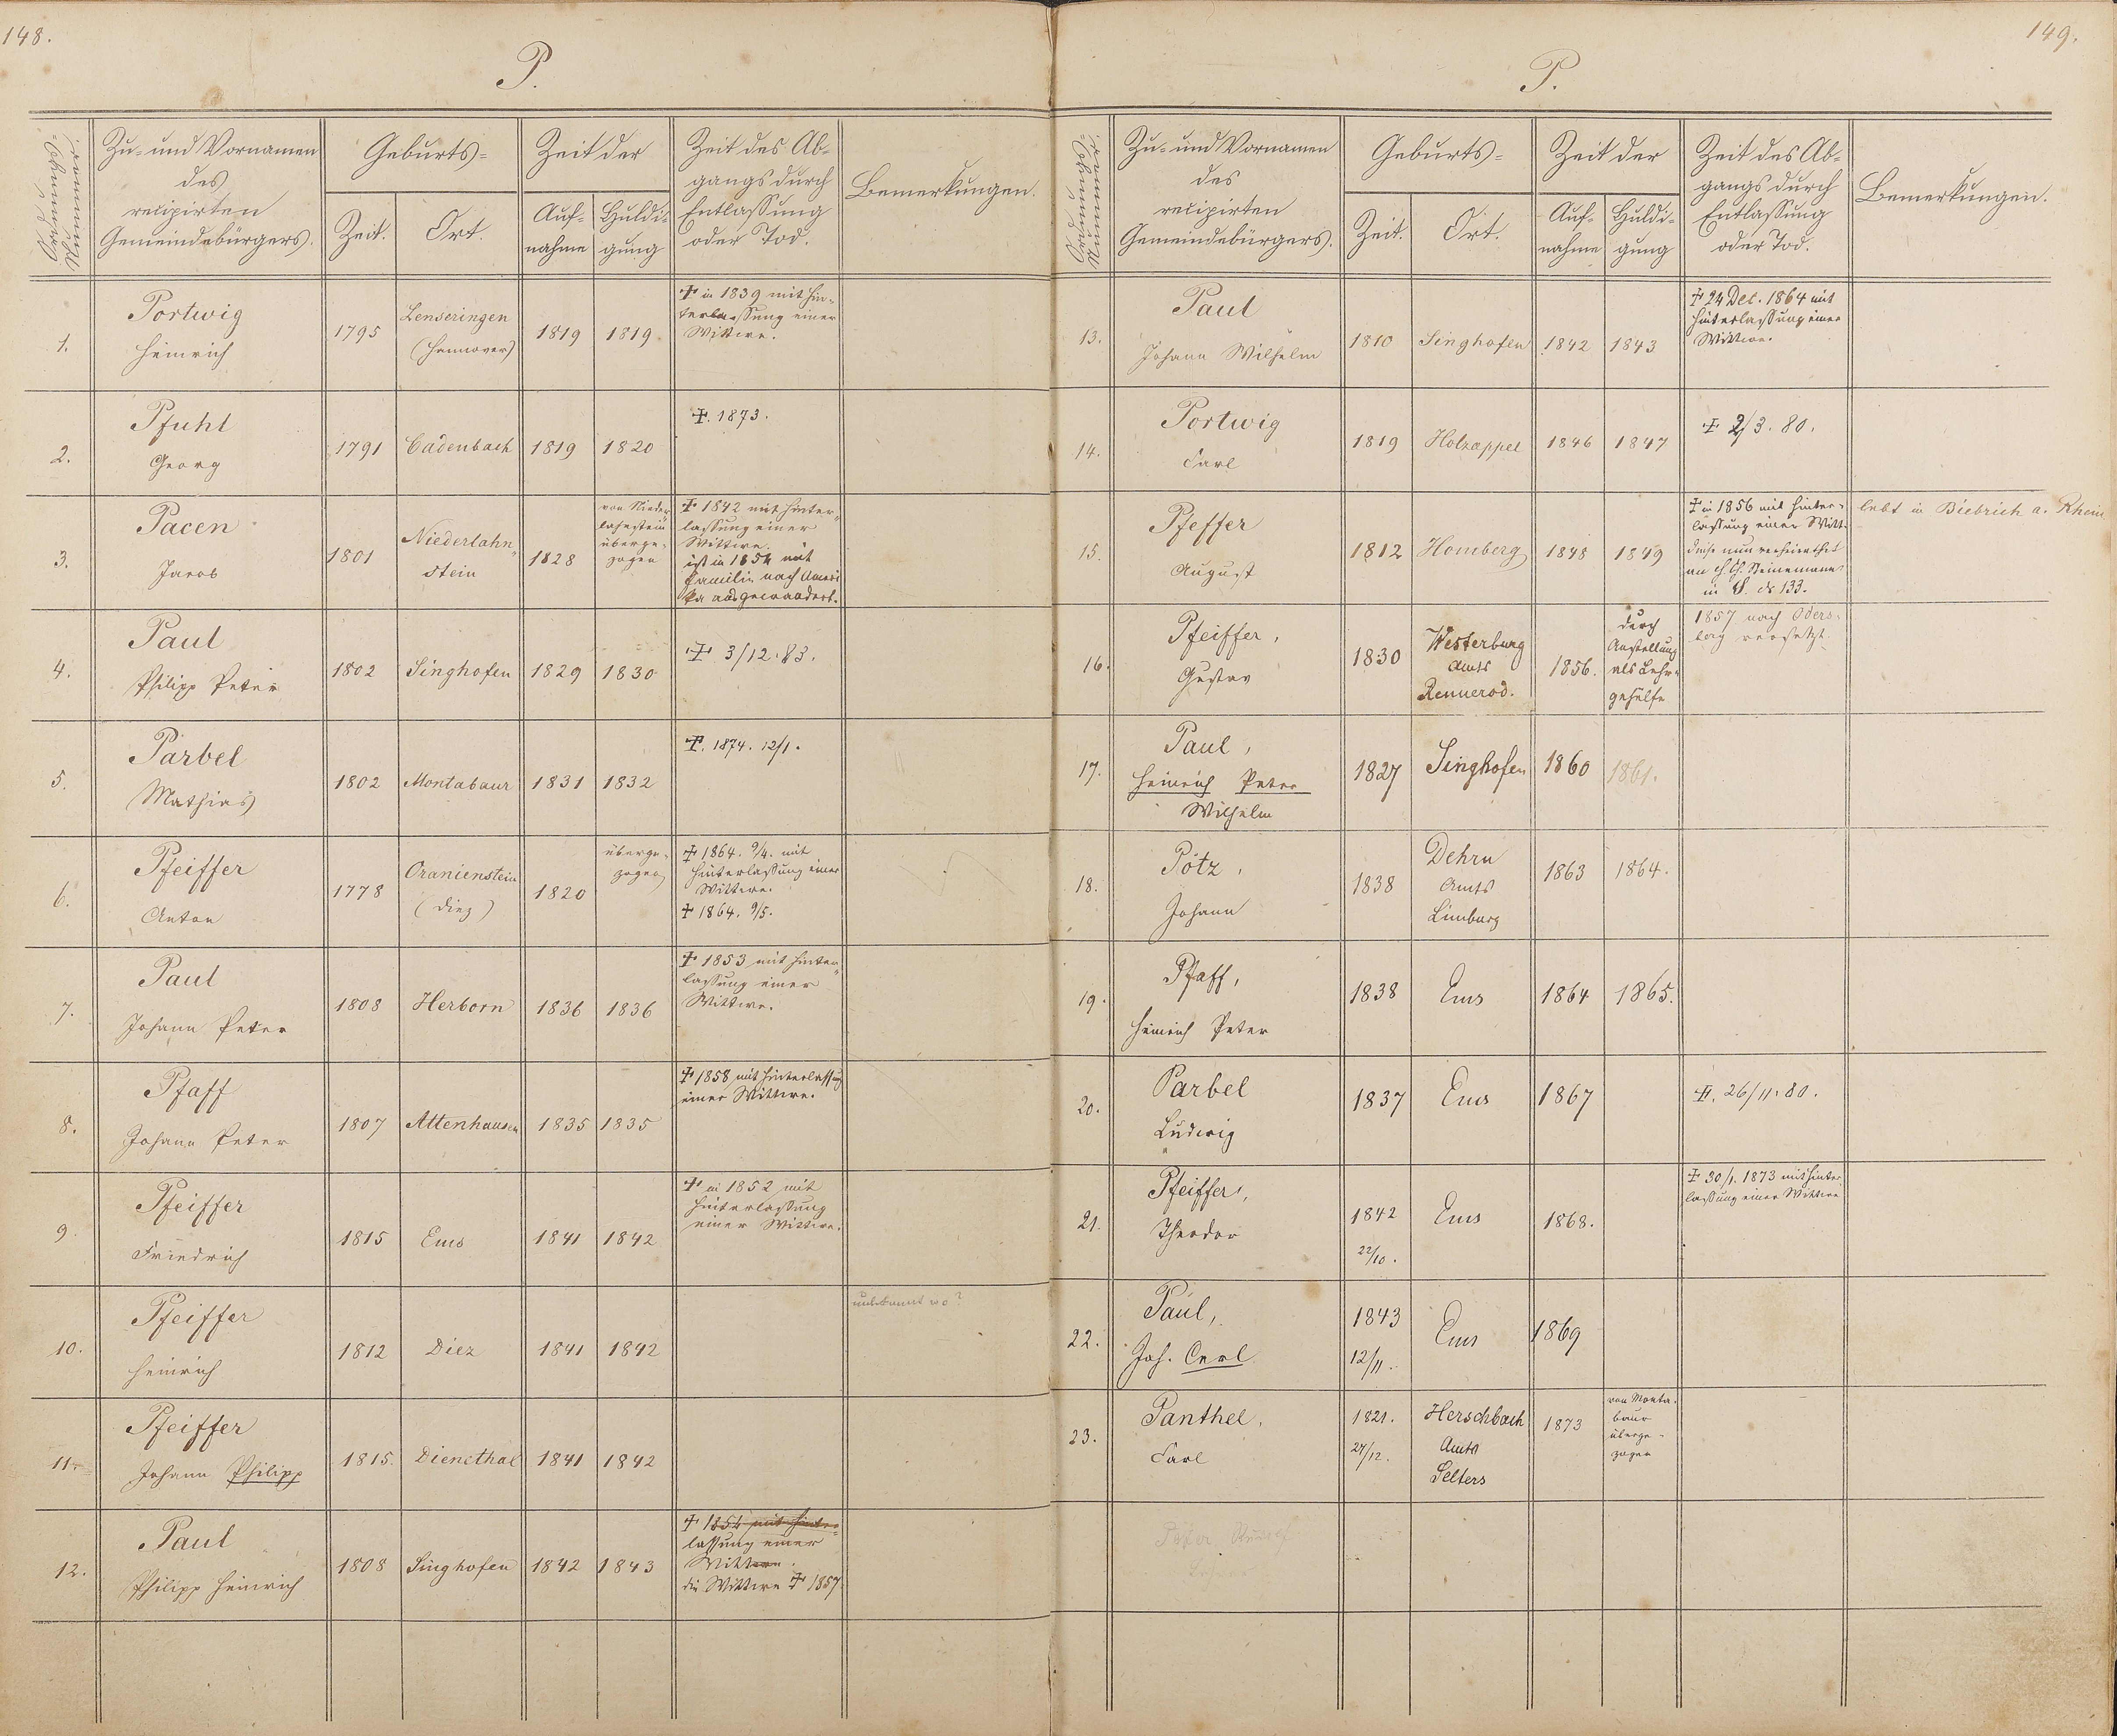 148.
P.
Ordnungs=
Nummer.
Zu- und Vornamen
des
recipirten
Gemeindebürgers.
Geburts=
Zeit.
Ort.
Zeit der
Auf-
nahme
Huldi-
gung
Zeit des Ab-
gangs durch
Entlassung
oder Tod.
Bemerkungen.
1.
Portwig
Heinrich
1795
Lenseringen
(Hannover)
1819
1819
† in 1839 mit Hin-
terlassung einer
Wittwe.
2.
Pfuhl
Georg
1791
Cadenbach
1819
1820
†. 1873.
3.
Pacen
Jacob
1801
Niederlahn
stein
1828
von Nieder
lahnstein
überge-
zogen
† 1842 mit Hinter,
lassung einer
Wittwe.
ist in 1854 mit
Familie nach Ameri
ka ausgewandert.
4.
Paul
Philipp Peter
1802
Singhofen
1829
1830
† 3/12.83.
5.
Parbel
Mathias
1802
Montabaur
1831
1832
†. 1874. 12/1.
6.
Pfeiffer
Anton
1778
Oranienstein
(Diez)
1820
überge-
zogen
† 1864. 9/4. mit
Hinterlassung einer
Wittwe.
† 1864. 9/5.
7.
Paul
Johann Peter
1808
Herborn
1836
1836
† 1853 mit Hinter,
lassung einer
Wittwe.
8.
Pfaff
Johann Peter
1807
Attenhausen
1835
1835
† 1858 mit Hinterlassung
einer Wittwe.
9.
Pfeiffer
Friedrich
1815
Ems
1841
1842
† in 1852 mit
Hinterlassung
einer Wittwe.
10.
Pfeiffer
Heinrich
1812
Diez
1841
1842
unbekannt wo?
11.
Pfeiffer
Johann Philipp
1815.
Dienethal
1841
1842
12.
Paul
Philipp Heinrich
1808
Singhofen
1842
1843
† 1854 mit Hinter-
lassung einer
Wittwe.
die Wittwe † 1857.
149.
P.
Ordnungs=
Nummer.
Zu- und Vornamen
des
recipirten
Gemeindebürgers.
Geburts=
Zeit.
Ort.
Zeit der
Auf-
nahme
Huldi-
gung
Zeit des Ab-
gangs durch
Entlassung
oder Tod.
Bemerkungen.
13.
Paul
Johann Wilhelm
1810
Singhofen
1842
1843
† 24 Dec. 1864 mit
Hinterlassung einer
Wittwe.
14.
Portwig
Carl
1819
Holzappel
1846
1847
† 2/3. 80.
15.
Pfeffer
August
1812
Homberg
1848
1849
† in 1856 mit Hinter-
lassung einer Witt.
diese nun verheirathet
an Ch. Steinemann
in S. No 133.
lebt in Biebrich a. Rhein
16.
Pfeiffer,
Gustav
1830
Westerburg
Amts
Rennerod.
1856.
durch
Anstellung
als Lehr-
gehülfe
1857 nach Oders-
bag versetzt.
17.
Paul,
Heinrich Peter
Wilhelm
1827
Singhofen
1860
1861.
18.
Pötz,
Johann
1838
Dehrn
Amts
Limburg
1863
1864.
19.
Pfaff,
Heinrich Peter
1838
Ems
1864
1865.
20.
Parbel
Ludwig
1837
Ems
1867
†. 26/11.80.
21.
Pfeiffer,
Theodor
1842
22/10.
Ems
1868.
† 30/1. 1873 mit Hinter,
lassung einer Wittwe
22.
Paul,
Joh. Carl
1843
12/11.
Ems
1869
23.
Panthel,
Carl
1821.
27/12.
Herschbach
Amts
Selters
1873
von Monta-
baur
überge-
zogen